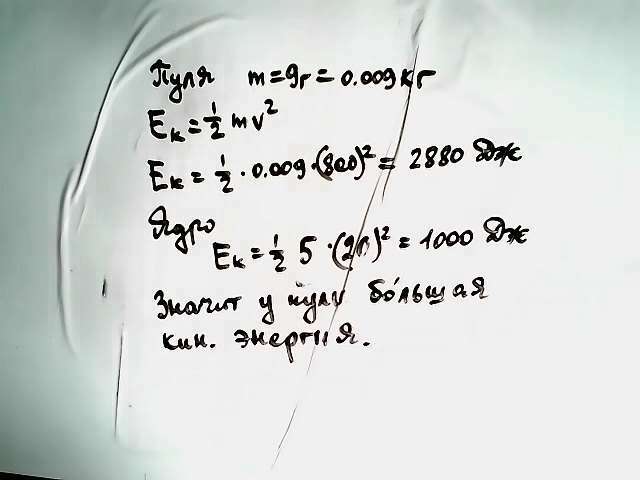 Пуля m=9г=0.009кг
Eк=½mv²
Eк=½·0.009·(800)²=2880 Дж
Ядро
Eк=½ 5·(20)²=1000 Дж
Значит у пули бо́льшая
кин. энергия.